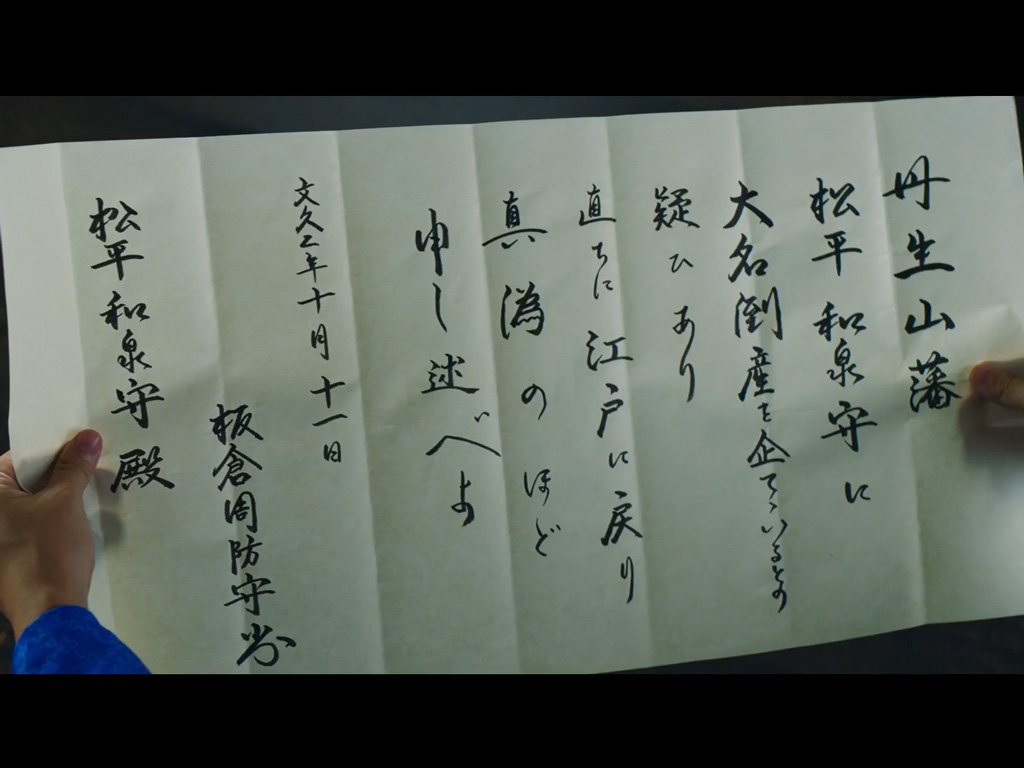 丹生山藩
松平和泉守に
大名倒産を企てゝいるとの
疑ひあり
直ちに江戸に戻り
真偽のほど
申し述べよ
文久二年十月十一日
板倉周防守
松平和泉守殿